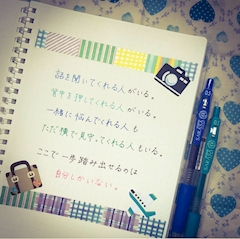 話を聞いてくれる人がいる。
背中を押してくれる人がいる。
一緒に悩んでくれる人も
ただ横で見守ってくれる人もいる。
ここで一歩踏み出せるのは
自分しかいない。